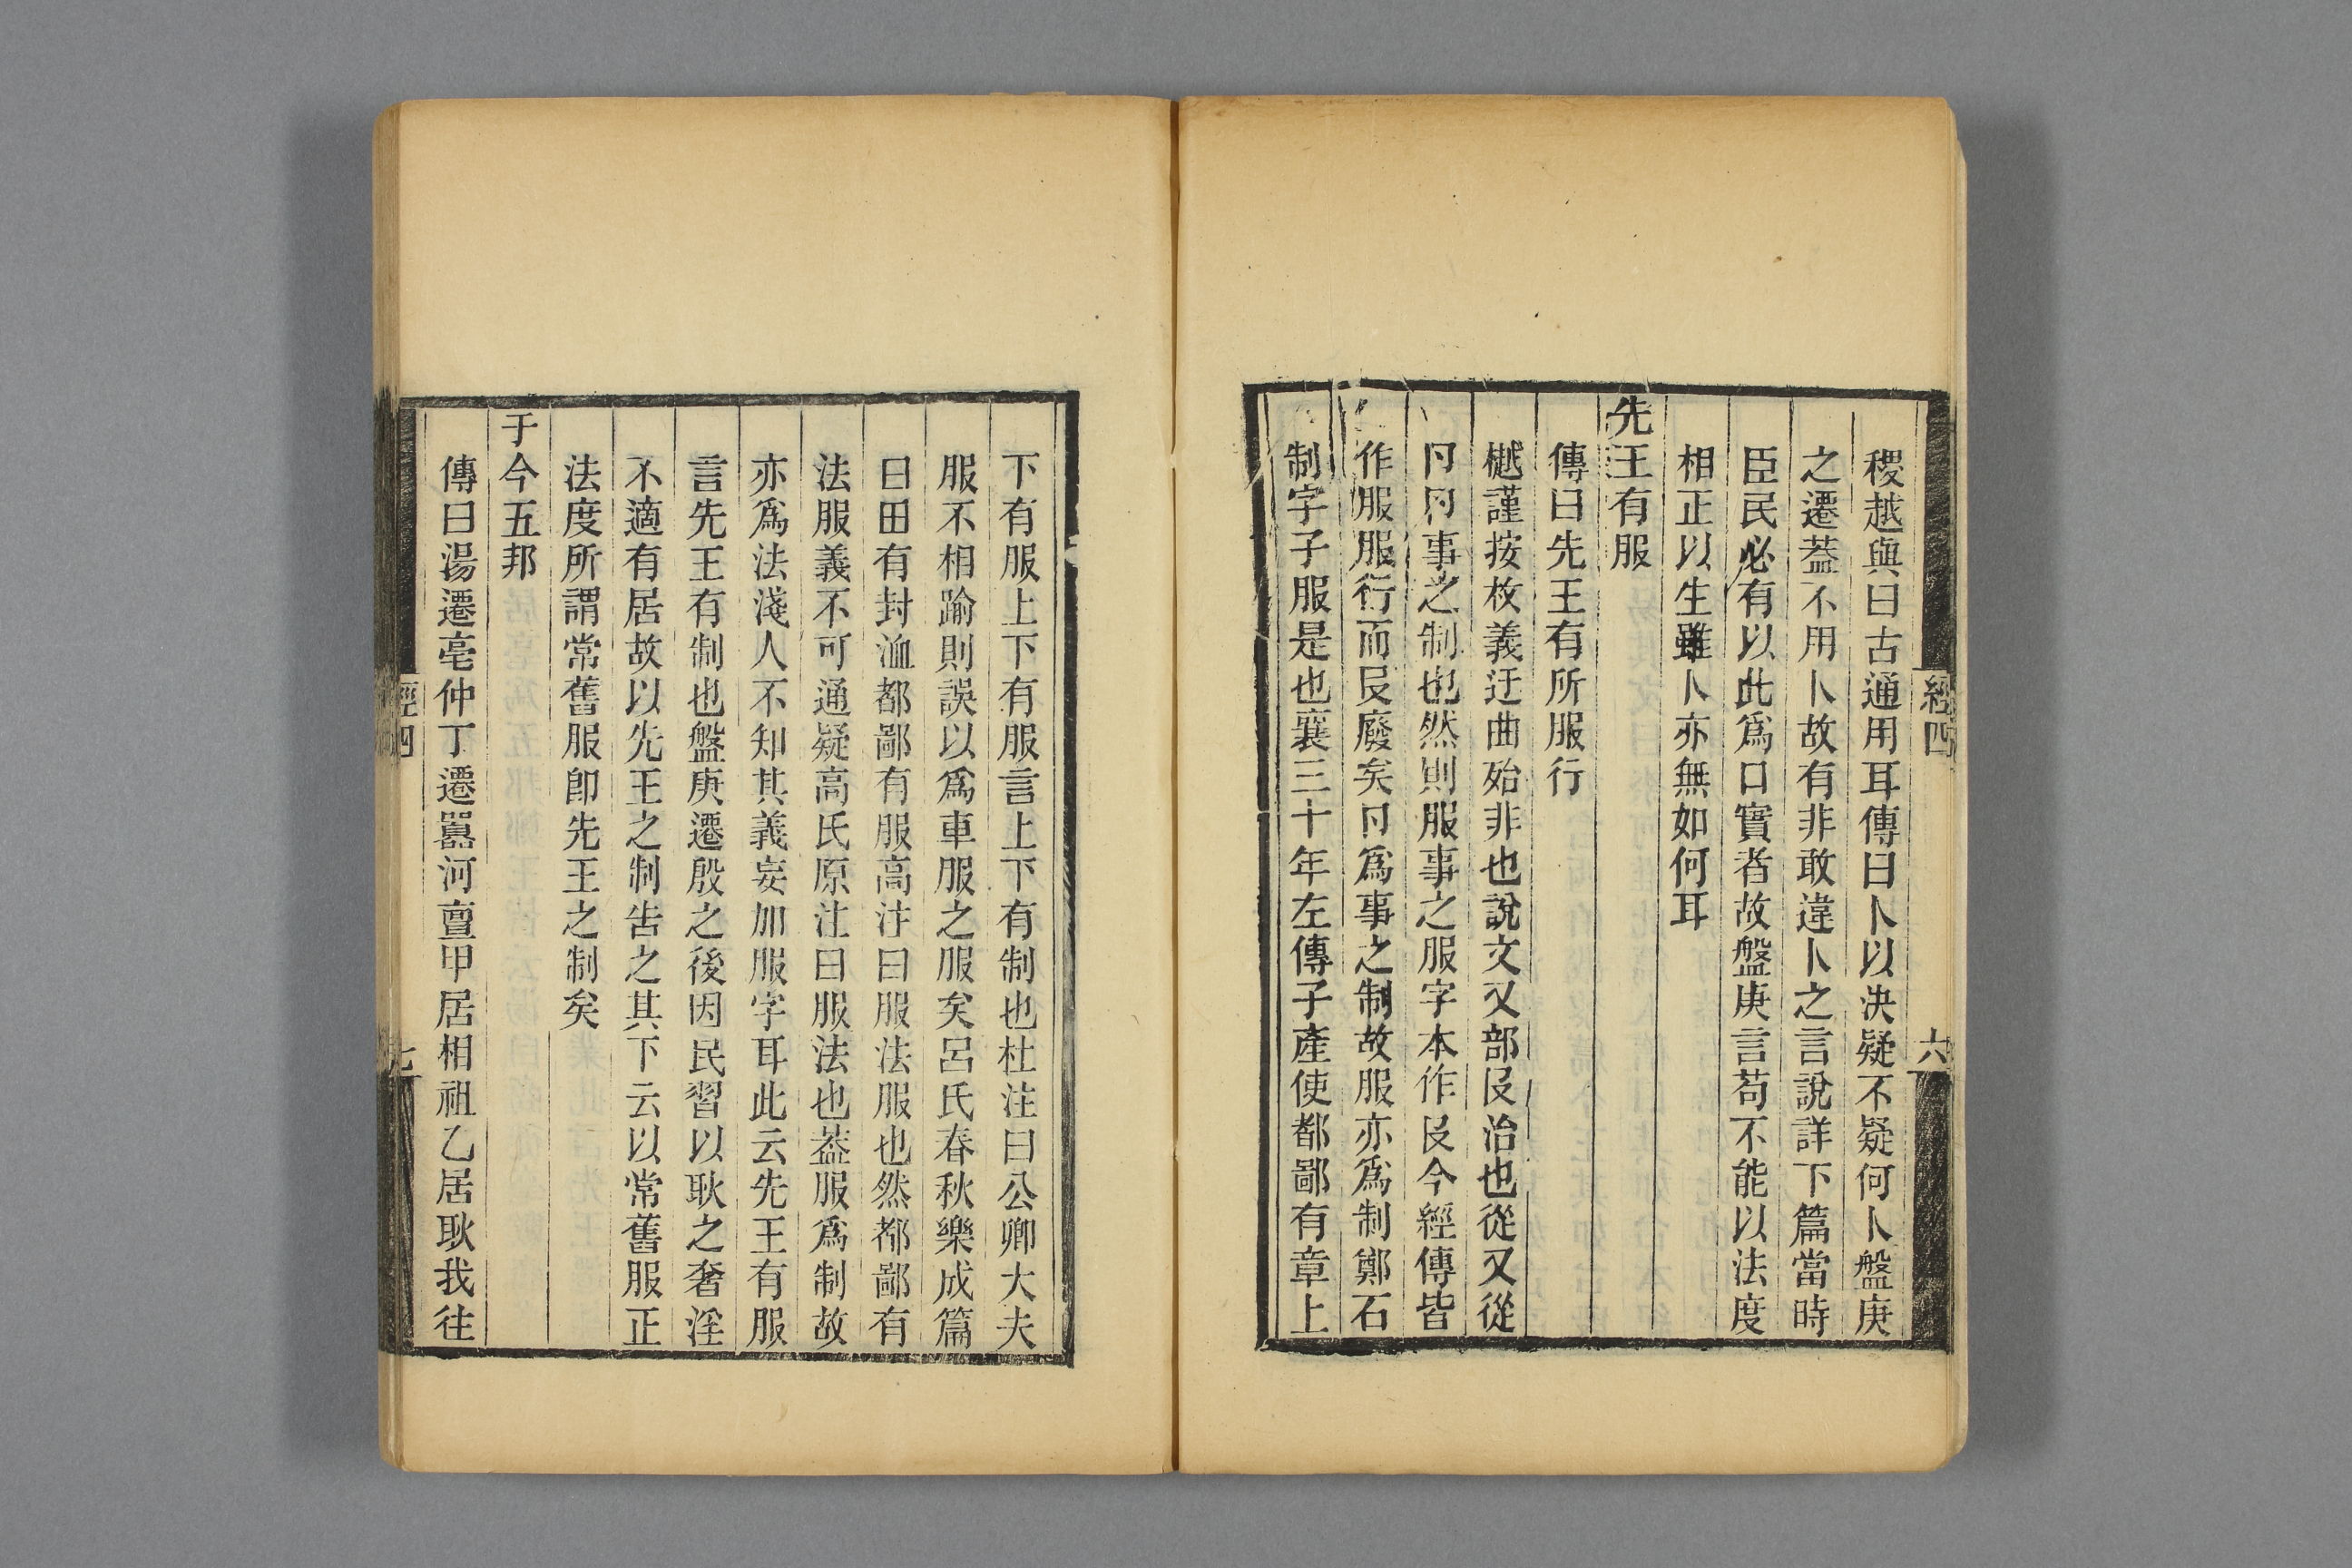 經四
六
稷越與曰古通用耳傳曰卜以決疑不疑何卜盤庚
之遷葢不用卜故有非敢違卜之言說詳下篇當時
臣民必有以此爲口實者故盤庚言苟不能以法度
相正以生雖卜亦無如何耳
先王有服
傳曰先王有所服行
樾謹按枚義迂曲殆非也說文又部𠬝治也從又從
卪卪事之制也然則服事之服字本作𠬝今經傳皆
作服服行而𠬝廢矣卪爲事之制故服亦爲制鄭石
制字子服是也襄三十年左傳子產使都鄙有章上
下有服上下有服言上下有制也杜注曰公卿大夫
服不相踰則誤以爲車服之服矣呂氏春秋樂成篇
曰田有封洫都鄙有服高注曰服法服也然都鄙有
法服義不可通疑高氏原注曰服法也葢服爲制故
亦爲法淺人不知其義妄加服字耳此云先王有服
言先王有制也盤庚遷殷之後因民習以耿之奢淫
不適有居故以先王之制告之其下云以常舊服正
法度所謂常舊服卽先王之制矣
于今五邦
傳曰湯遷亳仲丁遷囂河亶甲居相祖乙居耿我往
經四
七